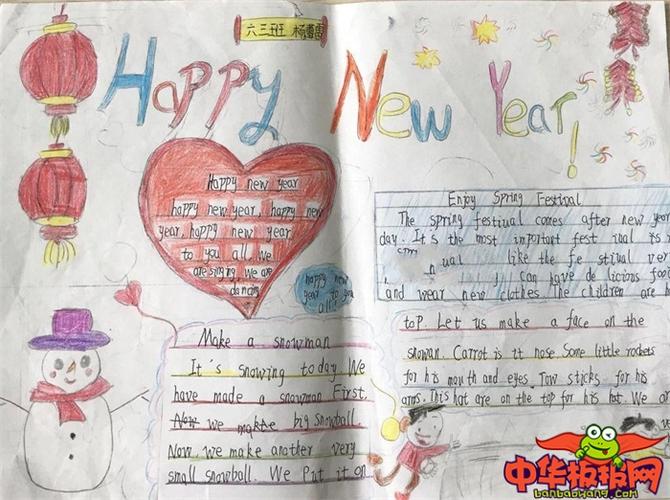 六三班
Happy New Year!
Happy new year
happy new year, happy new
year, happy new year
to you all. We
are singing, we are
dancing.
happy new
year to you
all!
Enjoy Spring Festival
The spring festiual comes after new year
day. It's the most important fest iual
ual like the fe stiual
can have de licious
and wear new clothes. The children are
Make a snowman
It's snowing today We
have made a snowman First.
Now we make big snowball.
Now, we make another very
small snowball. We Put it on
top Let us make a face on the
snowan. Carrot is it nose. Some little rockets
for his mouth and eyes. Tow sticks for his
arms. This hat are on the top for his hat. We
中华板报网
banbaowang.com